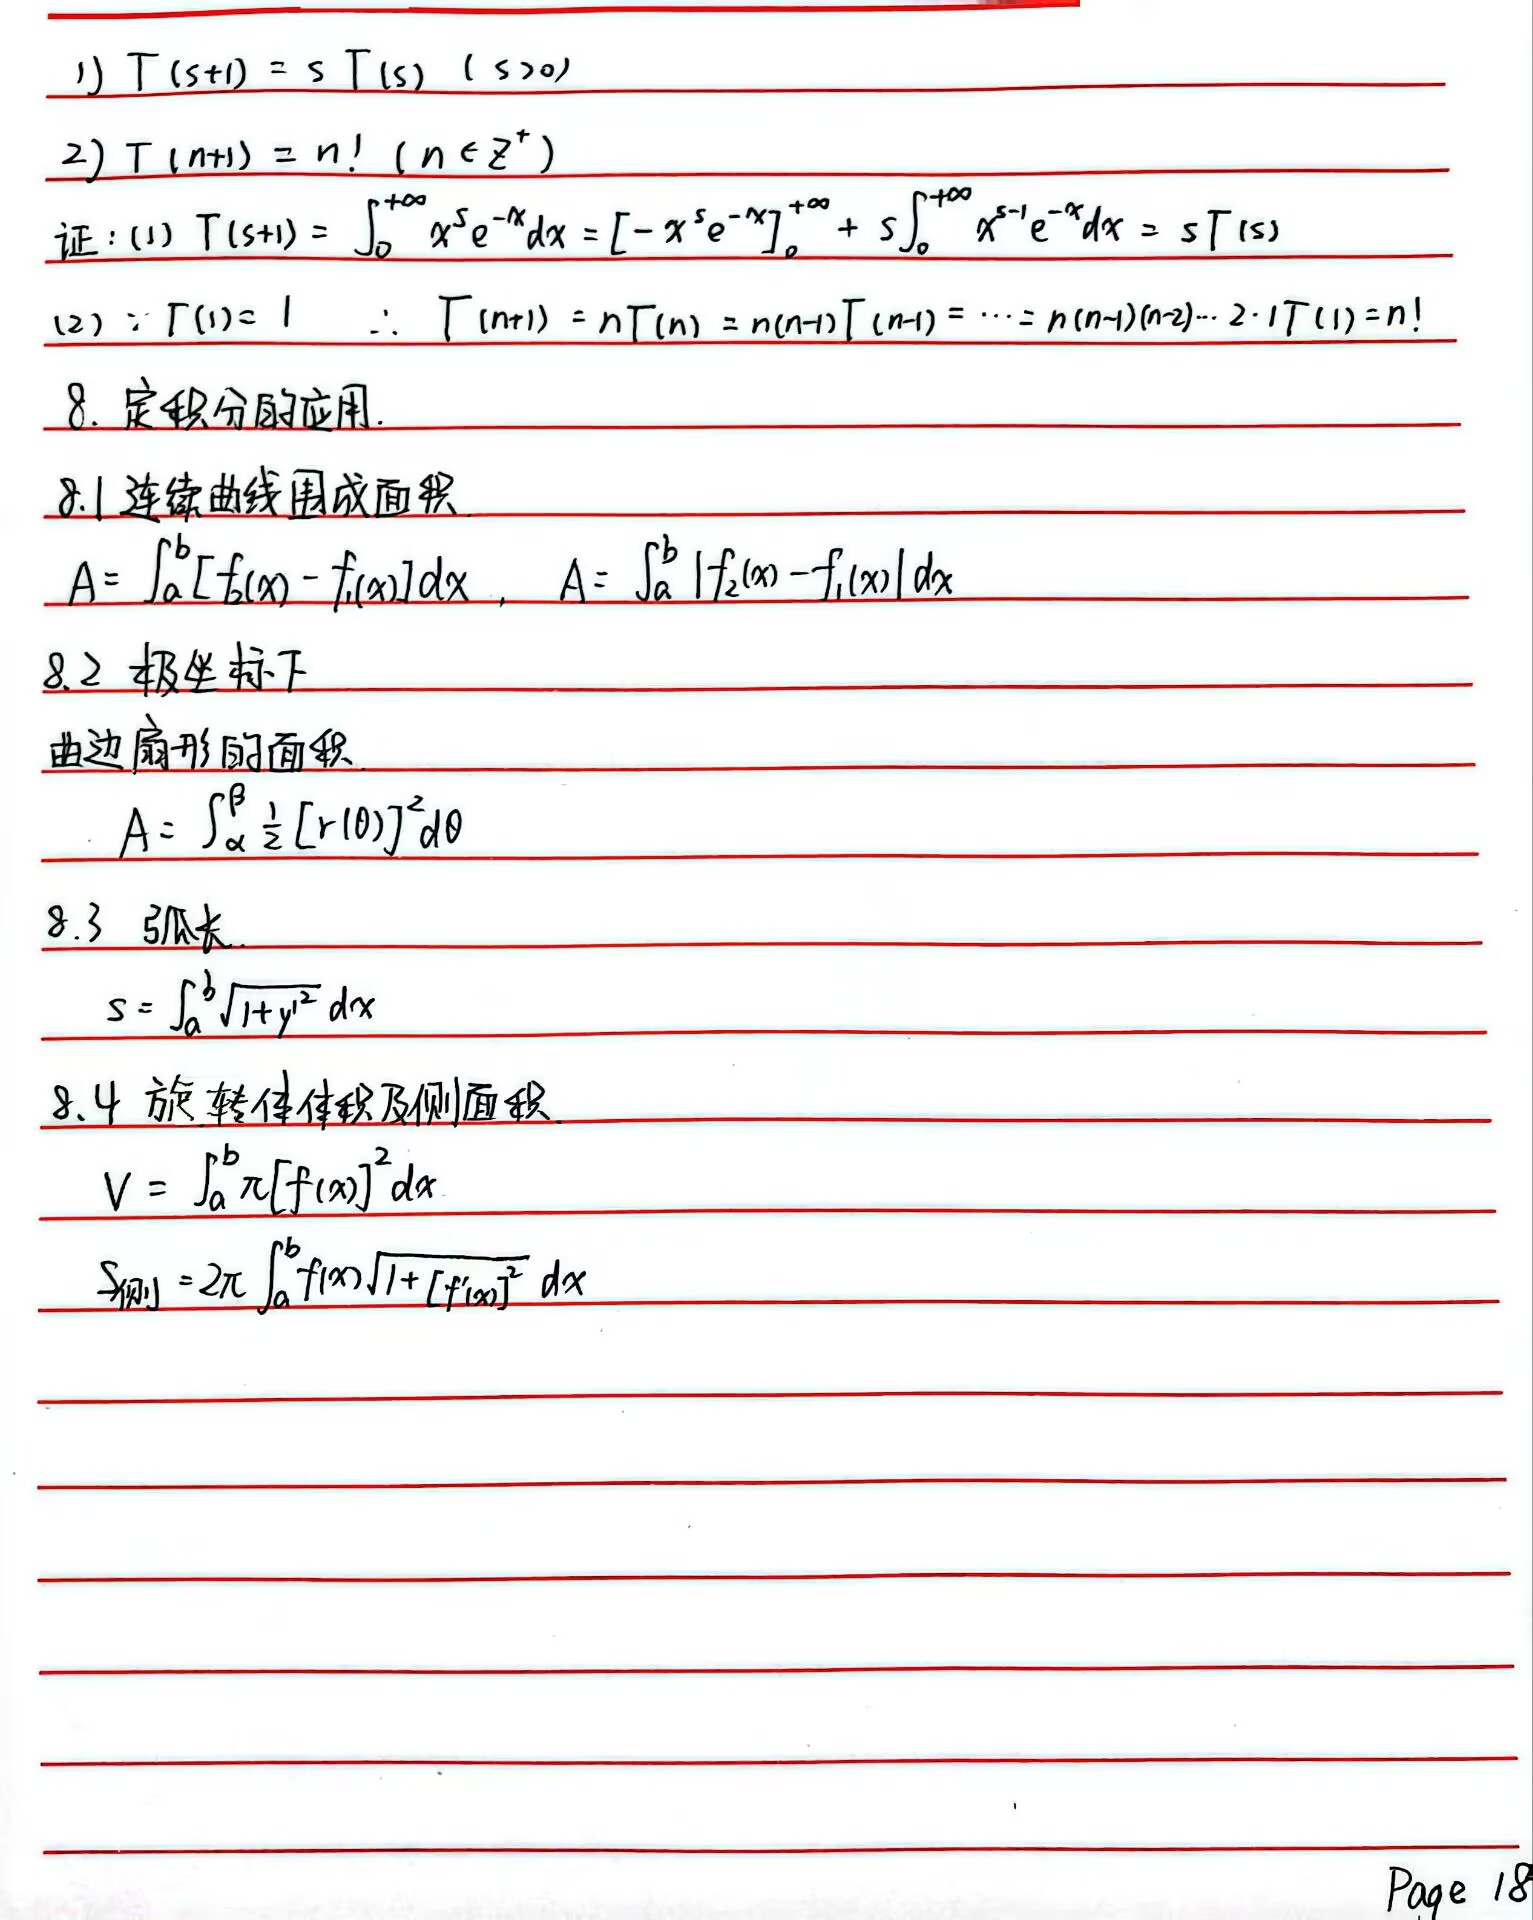 1) Γ(s+1) = sΓ(s) (s>0)
2) Γ(n+1) = n! (n∈Z⁺)
证:(1) Γ(s+1) = ∫₀^{+∞} x^s e^{-x}dx = [-x^s e^{-x}]₀^{+∞} + s∫₀^{+∞} x^{s-1}e^{-x}dx = sΓ(s)
(2) ∵ Γ(1) = 1 ∴ Γ(n+1) = nΓ(n) = n(n-1)Γ(n-1) = ⋯ = n(n-1)(n-2)⋯2·1Γ(1) = n!
8. 定积分的应用.
8.1 连续曲线围成面积
A = ∫_a^b [f₂(x) - f₁(x)]dx, A = ∫_a^b |f₂(x) - f₁(x)|dx
8.2 极坐标下
曲边扇形的面积.
A = ∫_α^β ½[r(θ)]²dθ
8.3 弧长.
s = ∫_a^b √(1+y'²) dx
8.4 旋转体体积及侧面积.
V = ∫_a^b π[f(x)]²dx
S侧 = 2π∫_a^b f(x)√(1+[f'(x)]²) dx
Page 18